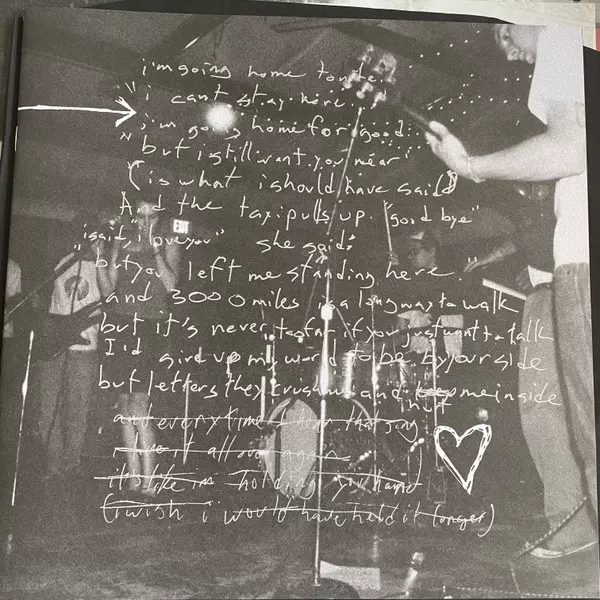 i'm going home tonite.
"i can't stay here.
i'm going home for good.
but i still want you near"
(is what i should have said)
And the taxi pulls up. "good bye"
"i said, i love you" she said:
but you left me standing here."
and 3000 miles is a long way to walk
but it's never too far if you just want to talk
I'd give up my world to be by your side
but letters they crush me and keep me inside
hurt
and everytime I hear that song
i live it all over again
it's like i'm holding your hand
(i wish i would have held it longer)
EXIT